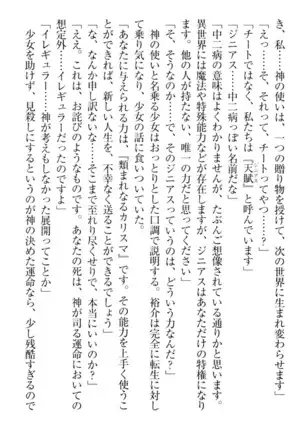 き、私……神の使いは、一つの贈り物を授けて、次の世界に生まれ変わらせます」
「えっ……そ、それって、チートってやつ……？」
「チートではなく、私たちは『天賦』と呼んでいます」
「ジニアス……中二病っぽい名前だな」
「中二病の意味はよくわかりませんが、たぶんご想像されている通りかと思います。
異世界には魔法や特殊能力などが存在しますが、ジニアスはあなただけの特権になり
ます。他の人が持たない、唯一の力だと思ってください」
「そ、そうなのか……で、そのジニアスっていうのは、どういう力なんだ？」
神の使いと名乗る少女はおっとりとした口調で説明する。裕介は完全に転生に対し
て乗り気になり、少女の話に食いついていた。
「あなたに与えられる力は、『類まれなるカリスマ』です。その能力を上手く使うこ
とができれば、新しい人生を、不幸なく送ることができるでしょう」
「な、なんか申し訳ないな……そこまで至れり尽くせりで、本当にいいのか？」
「ええ。これは、お詫びのようなものです。あなたの死は、神が司る運命においての
想定外……イレギュラーだったのですよ」
「イレギュラー……神が考えもしなかった展開ってことか」
「少女を助けず、見殺しにするというのが神の決めた運命なら、少し残酷すぎるので